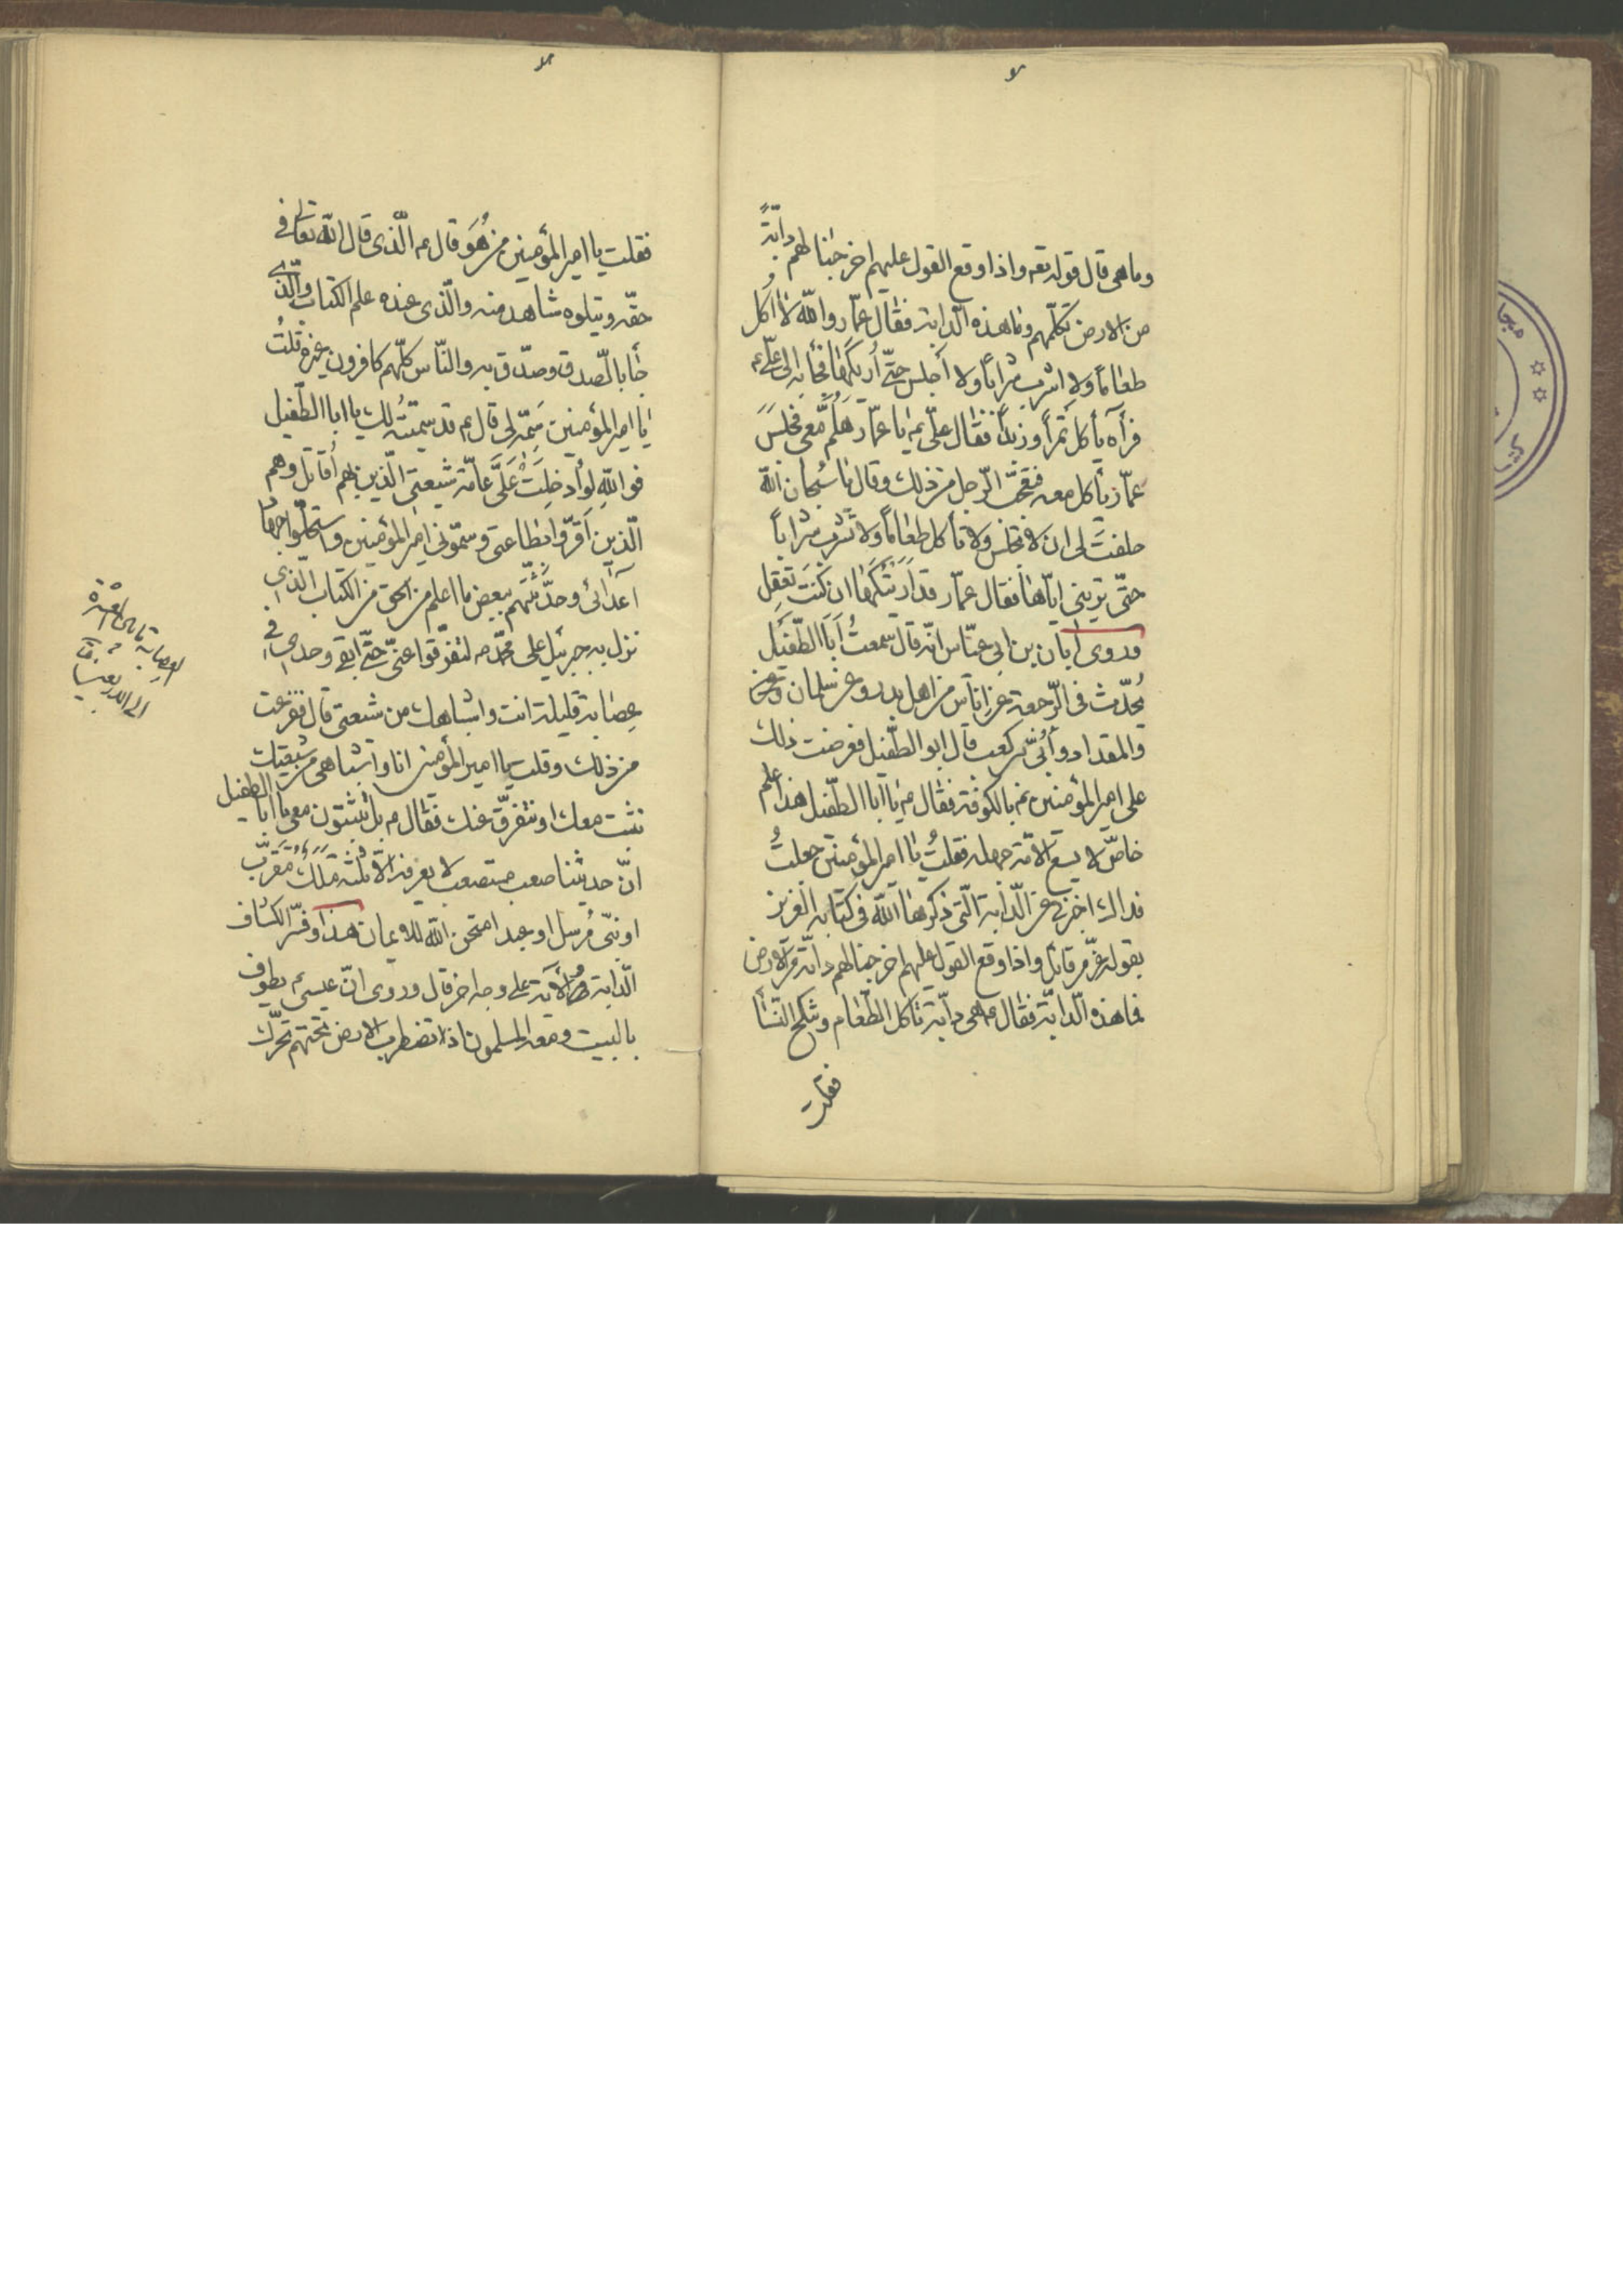 لا
وما هى قال قوله تعه واذا وقع القول عليهم اخرجنا لهم دابّةً
من الارض تكلّمهم وما هذه الدّابة فقال عمّار والله لا اُكل
طعاماً ولا اشرب شراباً ولا أجلس حتّى اُريكها فجاء به الى علىّ ع
فرآه يأكل تمراً وزبداً فقال علىّ ع يا عمّار هَلُمَّ معى فجلسَ
عمّار يأكل معه فتعجّب الرّجل من ذلك وقال يا سُبحان الله
حلفتَ لى ان لا تجلس ولا تأكل طعاماً ولا تشرب شراباً
حتّى ترينى ايّاها فقال عمّار قد اَرَيتُكها ان كنتَ تعقل
وروى ابان بن ابى عيّاش انّه قال سمعتُ اَبَا الطّفَيل
يُحدّث فى الرّجعة عن اناس من اهل بدر وعن سلمان وعن
والمقداد وأُبَىّ بن كعب قال ابو الطّفيل فعرضت ذلك
على امير المؤمنين ع بالكوفة فقال ع يا ابا الطّفيل هذا علم
خاصّ لا يسع الامّة جهله فقلتُ يا امير المؤمنين جعلتُ
فداك اخبرنى عن الدّابة الّتى ذكرها الله فى كتابه العزيز
بقوله عزّ من قائل واذا وقع القول عليهم اخرجنا لهم دابّة من الارض
فما هذه الدّابّة فقال ع هى دابّة تاكل الطّعام وتنكح النّساء
فقلت
لا
فقلت يا امير المؤمنين من هُوَ قال ع الّذى قال الله تعالى فى
حقّه ويتلوه شاهد منه والّذى عنده علم الكتاب والّذى
جاء بالصّدق وصدّق به والنّاس كلّهم كافرون غيره قلتُ
يا امير المؤمنين سَمِّه لى قال ع قد سمّيتُه لك يا ابا الطّفيل
فو اللهِ لو أُدخِلَتْ عَلَىَّ عامّة شيعتى الّذين بهم اُقاتل وهم
الّذين اَقَرّوا بطاعتى وسمّونى امير المؤمنين واستحلّوا جهاد
اَعدائى وحدّثتُهم ببعض ما اعلم من الحق من الكتاب الّذى
نزل به جبرئيل على محمّد ص لتفرّقوا عنّى حتّى ابقى وحدى فى
عِصابة قليلة انت واشباهك من شيعتى قال ففزعت
من ذلك وقلت يا امير المؤمنين انا واشباهى من شيعتك
نثبت معك او نتفرّق عنك فقال ع بل تثبتون معى يا ابا الطفيل
انّ حديثنا صعب مستصعب لا يعرفه الّا ثلثة مَلَكٌ مُقَرّب
او نبىّ مُرسل او عبد امتحن الله للايمان هذا وفسّر الكشاف
الدّابة والآية على وجه اخر قال وروى انّ عيسى ع يطوف
بالبيت ومعه المسلمون اذ تضطرب الارض تحتهم تحرّك
العصابة ما بين العشرة
الى الاربعين